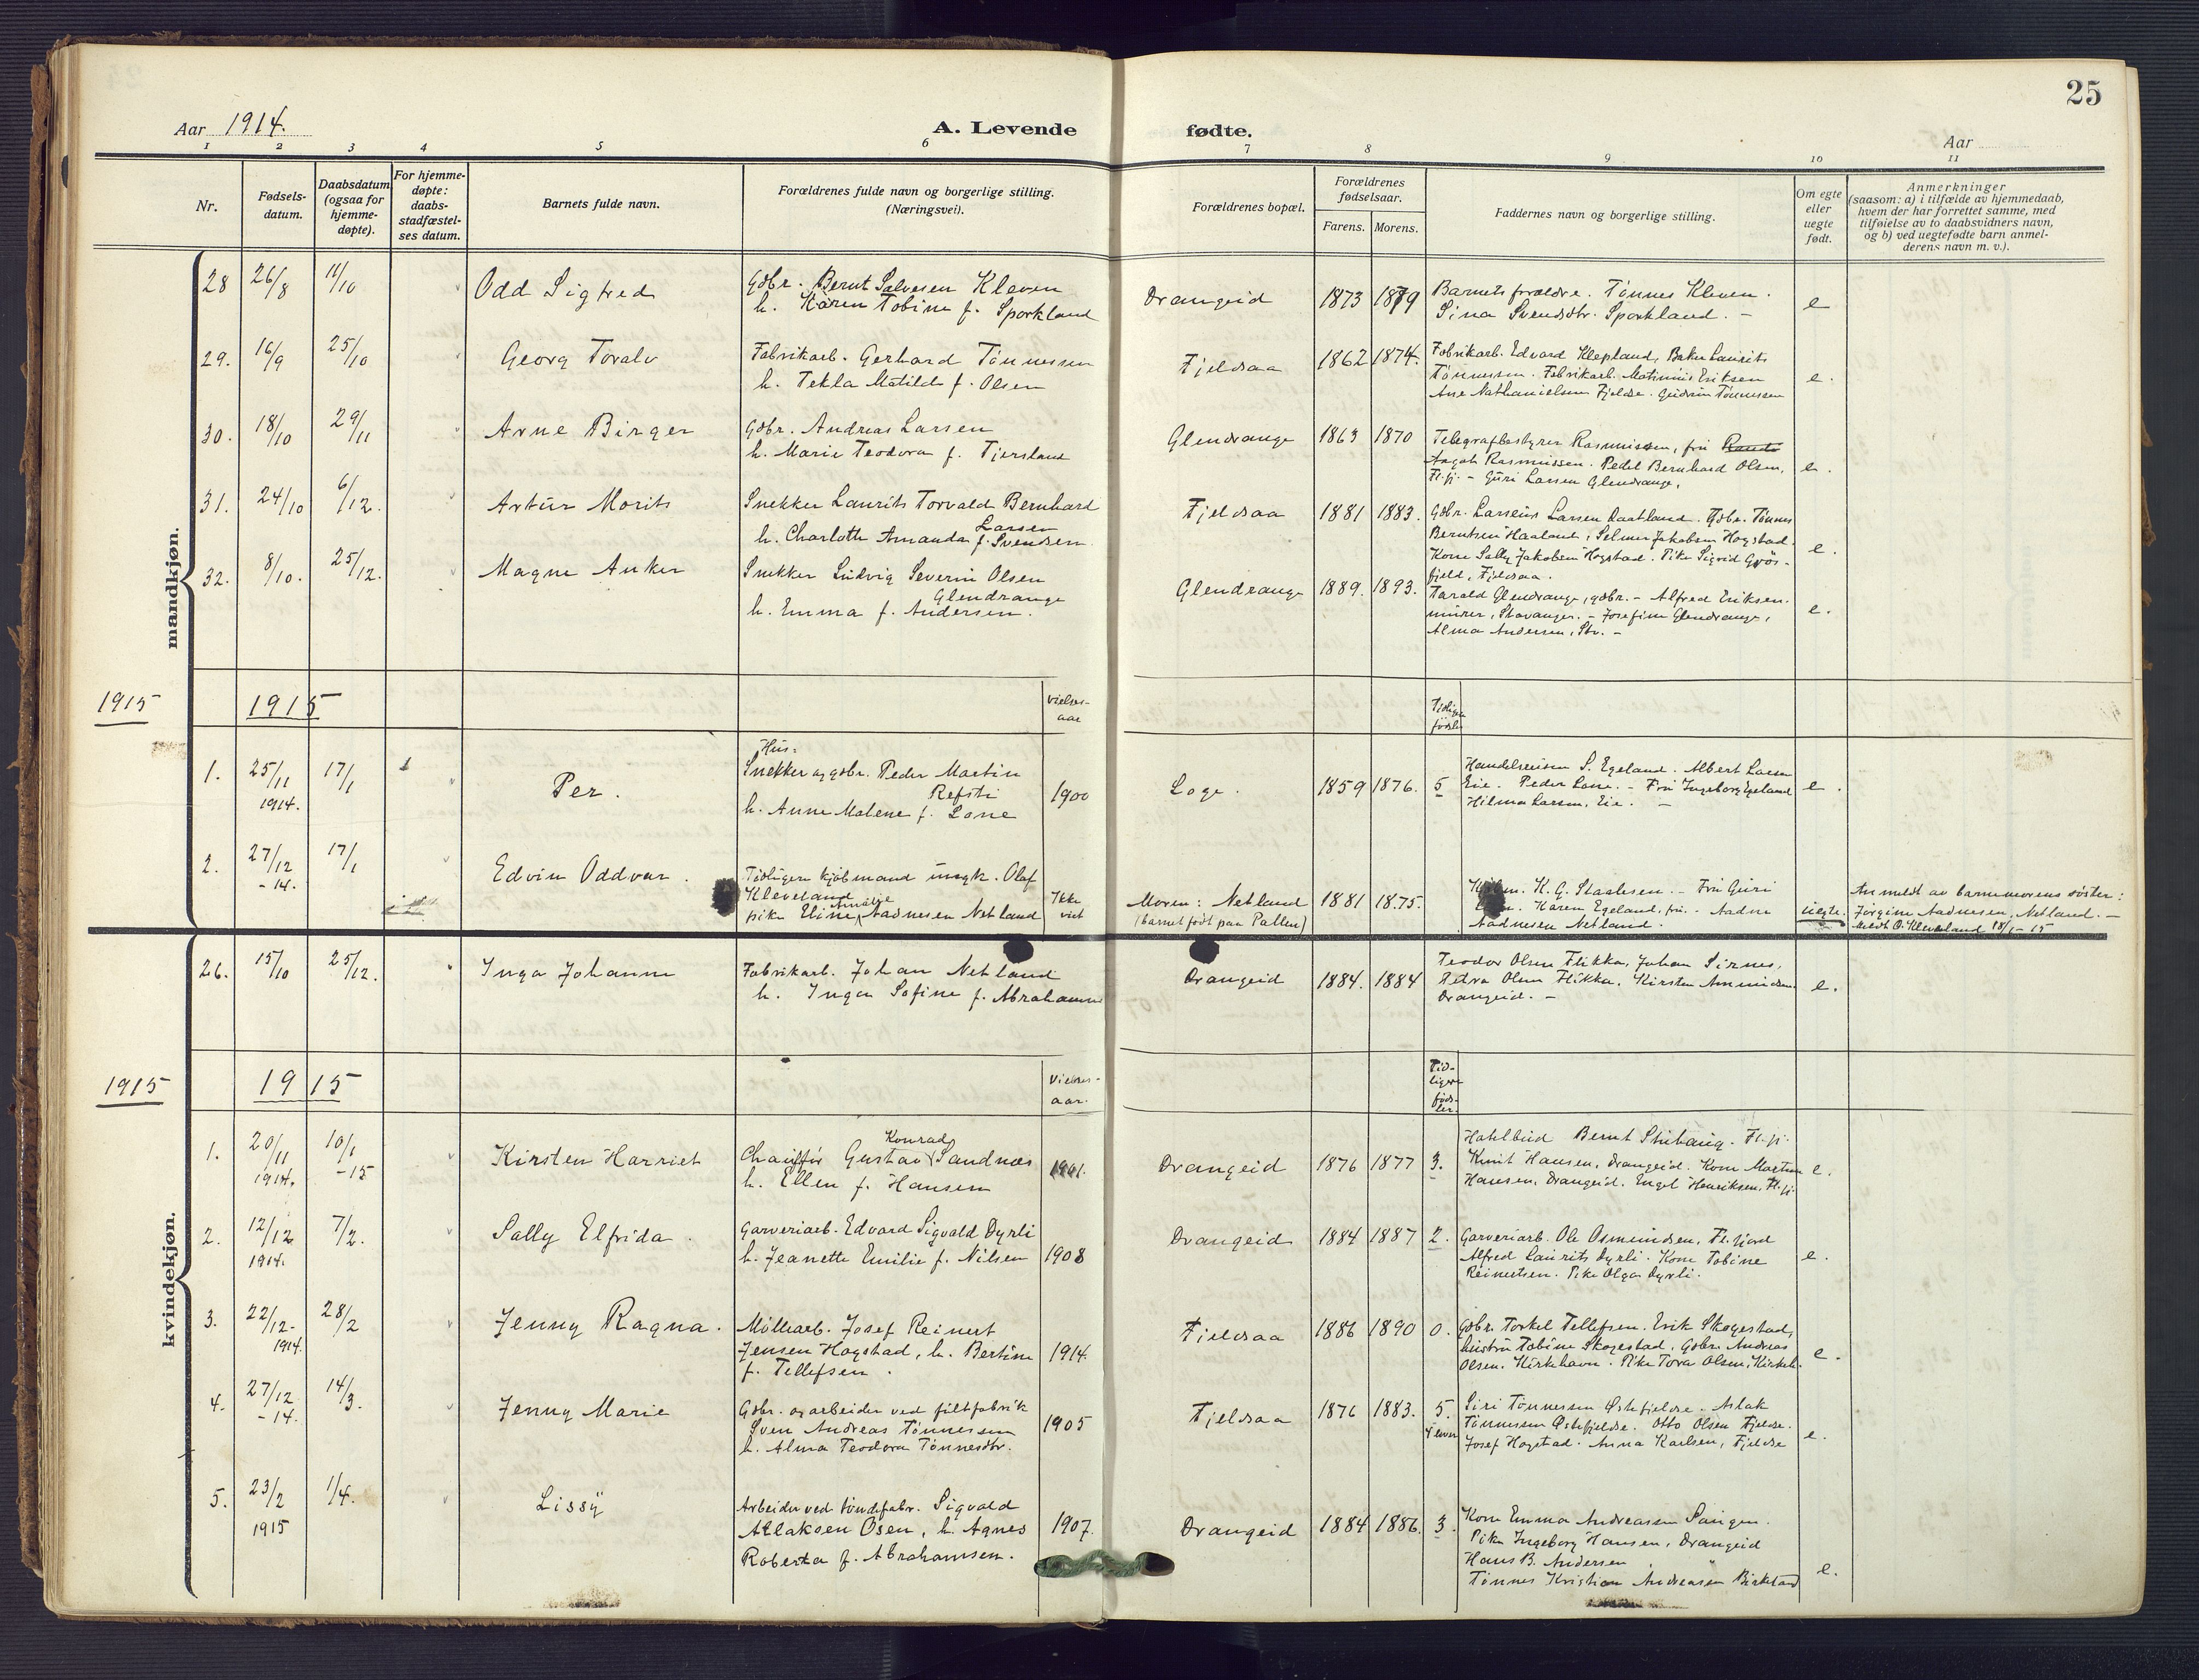 25
Aar 1914.
A. Levende fødte.
Aar
1 2 3 4 5 6 7 8 9 10 11
Nr.
Fødsels-
datum.
Daabsdatum
(ogsaa for
hjemme-
døpte).
For hjemme-
døpte:
daabs-
stadfæstel-
ses datum.
Barnets fulde navn.
Forældrenes fulde navn og borgerlige stilling.
(Næringsvei).
Forældrenes bopæl.
Forældrenes
fødselsaar.
Farens. Morens.
Faddernes navn og borgerlige stilling.
Om egte
eller
uegte
født.
Anmerkninger
(saasom: a) i tilfælde av hjemmedaab,
hvem der har forrettet samme, med
tilføielse av to daabsvidners navn,
og b) ved uegtefødte barn anmel-
derens navn m. v.).
mandkjøn.
28 26/8 11/10 Odd Sigfred
Gdbr. Bernt Salvesen Kleven
h. Karen Tobine f. Sporkland
Drangeid 1873 1879
Barnets forældre. Tønnes Kleven.
Sina Svendsdtr. Sporkland. -
e
29. 16/9 25/10 Georg Toralv
Fabrikarb. Gerhard Tønnessen
h. Tekla Matilde f. Olsen
Fjeldsaa 1862 1874.
Fabrikarb. Edvard Klepland, Baker Laurits
Tønnessen. Fabrikarb. Matinius Eriksen
Ane Nathanielsen Fjeldse. Gudrun Tønnessen
e.
30. 18/10 29/11 Arne Birger
Gdbr. Andreas Larsen
h. Marie Teodora f. Tjersland
Glendrange 1863 1870
Telegrafbestyrer Rasmussen, fru
Aagot Rasmussen. Pedel Bernhard Olsen,
Fl.fj. - Guri Larsen Glendrange.
e.
31. 24/10 6/12. Artur Morits
Snekker Laurits Torvald Bernhard
Larsen
h. Charlotte Amanda f. Svendsen
Fjeldsaa 1881 1883.
Gdbr. Larseius Larsen Raatland. Gdbr. Tønnes
Berntsen Haaland, Selmer Jakobsen Hogstad.
Kone Sally Jakobsen Hogstad. Pike Sigrid Grøs-
fjeld, Fjeldsaa.
e.
32. 8/10. 25/12. Magne Anker
Snekker Ludvig Severin Olsen
Glendrange
h. Emma f. Andersen.
Glendrange 1889. 1893.
Tarald Glendrange, gdbr. - Alfred Eriksen.
murer, Stavanger. - Josefine Glendrange,
Alma Andersen, Stv. -
e.
1915 1915
Vielses-
aar
Tidligere
fødsler
1. 25/11 17/1
1914.
Per.
Hus:
Snekker og gdbr. Peder Martin
Refsti
h. Anne Malene f. Lone
1900
Loge. 1859 1876. 5
Handelsreisen S. Egeland. Albert Larsen
Eie. Peder Lone. - Fru Ingeborg Egeland
Hilma Larsen, Eie. -
e.
2. 27/12 17/1
- 14.
Edvin Oddvar.
Tidligere kjøbmand ungk. Olaf
Kleveland
Amalie
pike Eline Aadnesen Netland
Ikke
viet
Moren: Netland
(barnet født paa Pallen)
1881 1875.
K. G. Staalesen. - Fru Guri
Karen Egeland, fru. - Aadne
Aadnesen Netland.
uegte.
Anmeldt av barnemorens søster:
Jørgine Aadnesen, Netland. -
meldt O. Kleveland 18/1 - 15
kvindekjøn.
26. 15/10 25/12. Inga Johanne
Fabrikarb. Johan Netland
h. Inga Sofine f. Abrahamse
Drangeid 1884. 1884
Teodor Olsen Flikka, Johan Sirnes,
Petra Olsen Flikka. Kirsten Amundsen
Drangeid. -
e.
1915 1915
Vielses-
aar.
Tid-
ligere
føds-
ler.
1. 20/11 10/1
1914. -15
Kirsten Harriet
Konrad
Chauffør Gustav Sandnes
h. Ellen f. Hansen
1901.
Drangeid 1876 1877 3.
Bernt Stubaug. Fl.fj.
Knut Hansen, Drangeid. Kone Martine
Hansen, Drangeid. Engel Henriksen, Fl.fj.
e.
2. 12/12 7/2.
1914.
Sally Elfrida.
Garveriarb. Edvard Sigvald Dyrli
h. Jeanette Emilie f. Nilsen
1908
Drangeid 1884 1887 2.
Garveriarb. Ole Osmundsen, Fl.fjord
Alfred Laurits Dyrli. Kone Tobine
Reinertsen. Pike Olga Dyrli.
e.
3. 22/12- 28/2
1914.
Jenny Ragna.
Møllearb. Josef Reinert
Jensen Hogstad, h. Bertine
f. Tellefsen.
1914.
Fjeldsaa 1886 1890 0.
Gdbr. Torkel Tellefsen. Erik Skogestad,
hustru Tobine Skogestad, Gdbr. Andreas
Olsen. Kirkehavn. Pike Tora Olsen, Kirkeh.
e.
4. 27/12 14/3.
- 14.
Jenny Marie
Gdbr. og arbeider ved filtfabrik
Sven Andreas Tønnessen
h. Alma Teodora Tønnesdtr.
1905
Fjeldsaa 1876 1883. 5.
4 lever
Siri Tønnessen Østefjeldse. Aslak
Tønnessen Østefjeldse. Otto Olsen Fjeldse.
Josef Hogstad. Anna Karlsen, Fjeldse
e.
5. 23/2 1/4.
1915
Lissÿ
Arbeider ved tøndefabr. Sigvald
Atlaksen Osen, h. Agnes
Roberta f. Abrahamsen.
1907.
Drangeid 1884 1886. 3.
Kone Emma Andreassen Saugen.
Pike Ingeborg Hansen, Drangeid
Hans B. Andersen "
Tønnes Kristian Andreassen Birkeland
e.